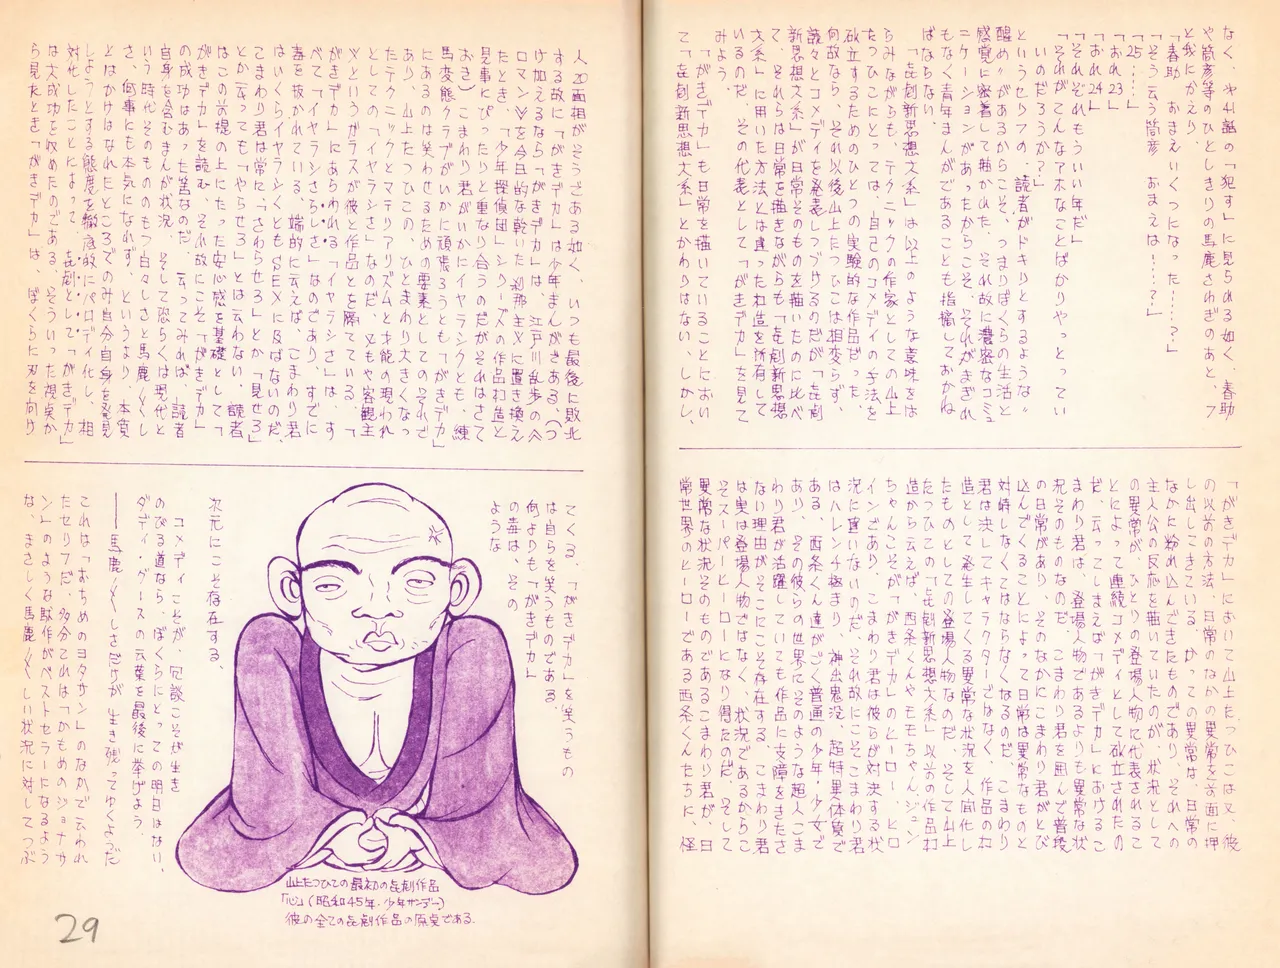 なく、や41話の「犯す」に見られる如く、春助
や筒彦等のひとしきりの馬鹿さわぎのあと、フ
と我にかえり、
「春助 おまえいくつになった……？」
「そう云う筒彦 おまえは……？」
「25……」
「おれ23」
「おれ24」
「それぞれもういい年だ」
「それがてんなアホなことばかりやっとってい
いのだろうか？」
というセリフの、読者がドキリとするような〝
醒め〟があるからこそ、つまりぼくらの生活と
感覚に密着して描かれた、それ故に濃密なコミュ
ニケーションがあったからこそ、それがまぎれ
もなく青年まんがであることも指摘しておかね
ばならない。
「喜劇新思想大系」は以上のような意味をは
らみながらも、テクニックの作家としての山上
たつひこにとっては、自己のコメディの手法を
確立するためのひとつの実験的な作品だった。
何故なら、それ以後山上たつひこは相変らず、
続々とコメディを発表しつづけるのだが「喜劇
新思想大系」が日常そのものを描いたのに比べ
て、それらは日常を描きながらも「喜劇新思想
大系」に用いた方法とは違った構造を所有して
いるのだ。その代表として「がきデカ」を見て
みよう。
「がきデカ」も日常を描いていることにおい
て「喜劇新思想大系」とかわりはない。しかし、
「がきデカ」において山上たつひこは又、彼
の以前の方法、日常のなかの異常を前面に押
し出してきている。かつての異常は、日常の
なかに紛れ込んできたものであり、それへの
主人公の反応を描いていたのが、状況として
の異常が、ひとりの登場人物に代表されるこ
とによって連続コメディとして確立されたの
だ。云ってしまえば「がきデカ」におけるこ
まわり君は、登場人物であるよりも異常な状
況そのものなのだ。こまわり君を囲んで普段
の日常があり、そのなかにこまわり君がとび
込んでくることによって日常は異常なものと
対峙しなくてはならなくなるのだ。こまわり
君は決してキャラクターではなく、作品の構
造として発生してくる異常な状況を人間化し
たものとしての登場人物なのだ。そして山上
たつひこの「喜劇新思想大系」以前の作品構
造から云えば、西条くんやモモちゃん、ジュン
ちゃんこそが「がきデカ」のヒーロー、ヒロ
インであり、こまわり君は彼らが対決する状
況に違いないのだ。それ故にこそこまわり君
はハレンチ極まり、神出鬼没、超特異体質で
ある。西条くん達がごく普通の少年・少女で
あり、その彼らの世界にそのような超人こま
わり君が活躍していても作品に支障をきたさ
ない理由がそこにこそ存在する。こまわり君
は実は登場人物ではなく、状況であるからこ
そスーパーヒーローとなり得たのだ。
異常な状況そのものであるこまわり君が、日
常世界のヒーローである西条くんたちに、怪
人20面相がそうである如く、いつも最後に敗北
する故に「がきデカ」は少年まんがである。（つ
け加えるなら「がきデカ」は、江戸川乱歩の≪
ロマン≫を今日的な乾いた≪刹那主義≫に置き換え
たとき、「少年探偵団」シリーズの作品構造と
見事にぴったりと重なり合うのだがそれはさて
おき）こまわり君がいかにイヤラシクとも、練
馬変態クラブがいかに頑張ろうとも「がきデカ」
にあるのは笑わせるための要素としてのそれで
あり、山上たつひこの、ひとまわり大きくなっ
たテクニックとマテリアリズムと才能の現われ
としての「イヤラシさ」なのだ。又もや客観主
義というガラスが彼と作品とを隔てている。「
がきデカ」にあらわれる「イヤラシさ」は、す
べて「イヤラシさらしさ」なのであり、すでに
毒を抜かれている。端的に云えば、こまわり君
はいくらイヤラシくともSEXに及ばないのだ。
こまわり君は常に「さわらせろ」とか「見せろ」
とか云っても「やらせろ」とは云わない。読者
はこの前提の上にたった安心感を基礎として「
がきデカ」を読む。それ故にこそ「がきデカ」
の成功はあった筈なのだ。云ってみれば、読者
自身を含むまんが状況、そして恐らくは現代と
いう時代そのもののもつ白々しさと馬鹿〱し
さ、何事にも本気になれず、というより、本質
とはかけはなれたところでのみ自分自身を発見
しようとする態度を徹底的にパロディ化し、相
対化したことによって、喜劇として「がきデカ」
は大成功を収めたのである。そういった視点か
ら見たとき「がきデカ」は、ぼくらに刃を向け
てくる。「がきデカ」を笑うもの
は自らを笑うものである。
何よりも「がきデカ」
の毒は、その
ような
次元にこそ存在する。
コメディこそが、冗談こそが生き
のびる道なら、ぼくらにとっての明日はない。
ダディ・グースの言葉を最後に挙げよう。
――馬鹿〱しさだけが 生き残ってゆくようだ
これは「おちめのヨタサン」のなかで云われ
たセリフだ。多分それは「かもめのジョナサ
ン」のような駄作がベストセラーになるよう
な、まさしく馬鹿〱しい状況に対してつぶ
山上たつひこの最初の喜劇作品
「心」（昭和45年・少年サンデー）
彼の全ての喜劇作品の原点である。
29